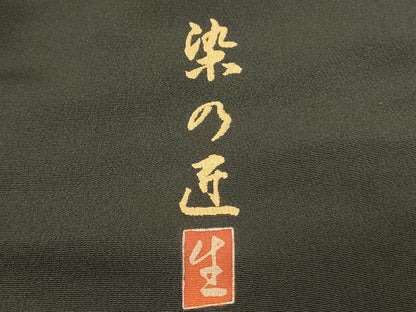 染の匠
生